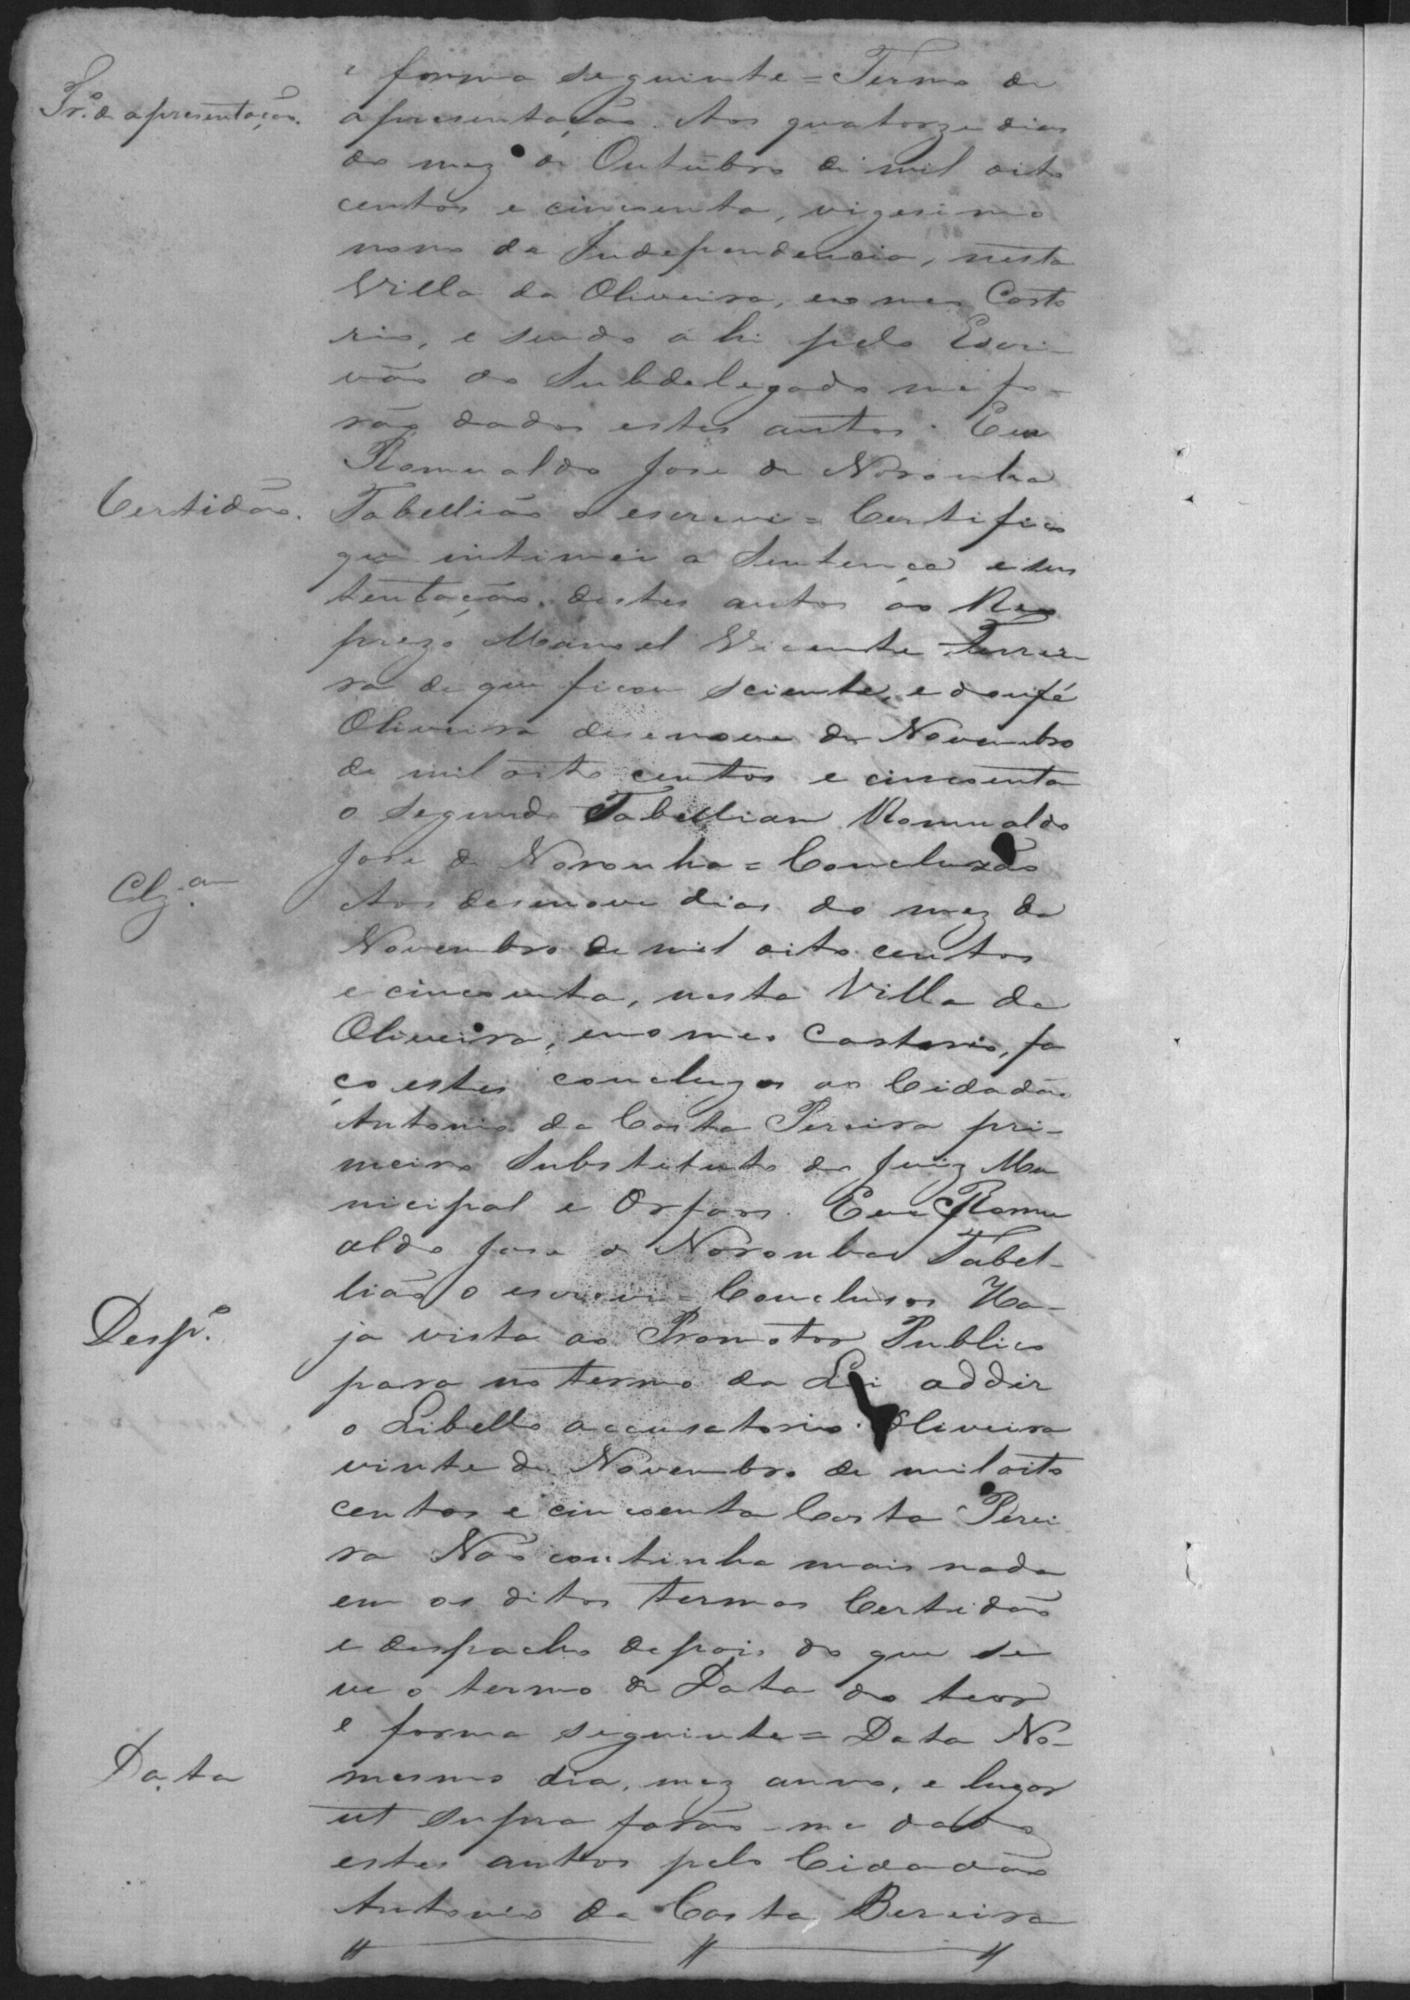 e forma seguinte = Termo de
Tr.º de apresentação. apresentação. Aos quatorze dias
do mez de Outubro de mil oito
centos e cincoenta, vigesimo
nono da Independencia, nesta
Villa da Oliveira, em meu Carto
rio, e sendo ahi pelo Escri-
vão do Subdelegado me fo-
rão dados estes autos. Eu
Romualdo Jose de Noronha
Certidão. Tabellião o escrevi = Certifico
que intimei a Sentença e sus
tentação destes autos ao Reo
prezo Manoel Vicente Ferrei
ra de que ficou sciente, e dou fé
Oliveira desenove de Novembro
de mil oito centos e cincoenta
o segundo Tabelliam Romualdo
Jose de Noronha = Concluzão
Clz.am Aos desenove dias do mez de
Novembro de mil oito centos
e cincoenta, nesta Villa da
Oliveira, em o meu Cartorio, fa
ço estes concluzos ao Cidadão
Antonio da Costa Pereira pri-
meiro Substituto do Juiz Mu
nicipal e Orfãos. Eu Romu
aldo Jose de Noronha Tabel-
lião o escrevi = Conclusos Ha-
Desp.º ja vista ao Promotor Publico
para no termo da Lei addir
o Libello accusatorio. Oliveira
vinte de Novembro de mil oito
centos e cincoenta Costa Perei
ra Não continha mais nada
em os ditos termos Certidão
e despacho depois do que se
ve o termo de Data do teor
e forma seguinte = Data No-
Data mesmo dia, mez anno, e lugar
ut supra forão-me dados
estes autos pelo Cidadão
Antonio da Costa Bereira